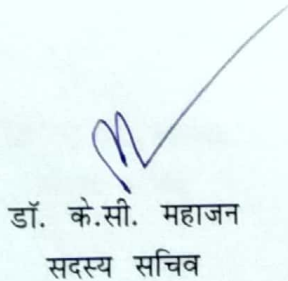 डॉ. के.सी. महाजन
सदस्य सचिव